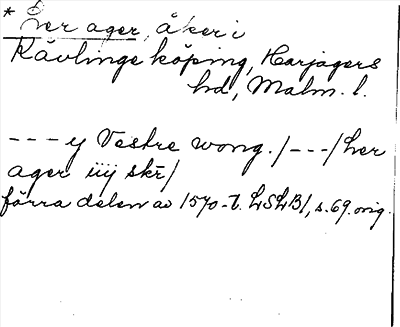 * Her ager, åker i
Kävlinge köping, Harjagers
hd, Malm. l.
--- y Vestre wong. /---/ her
ager iiij skr/
förra delen av 1570-t. LSLB1, s. 69. orig.